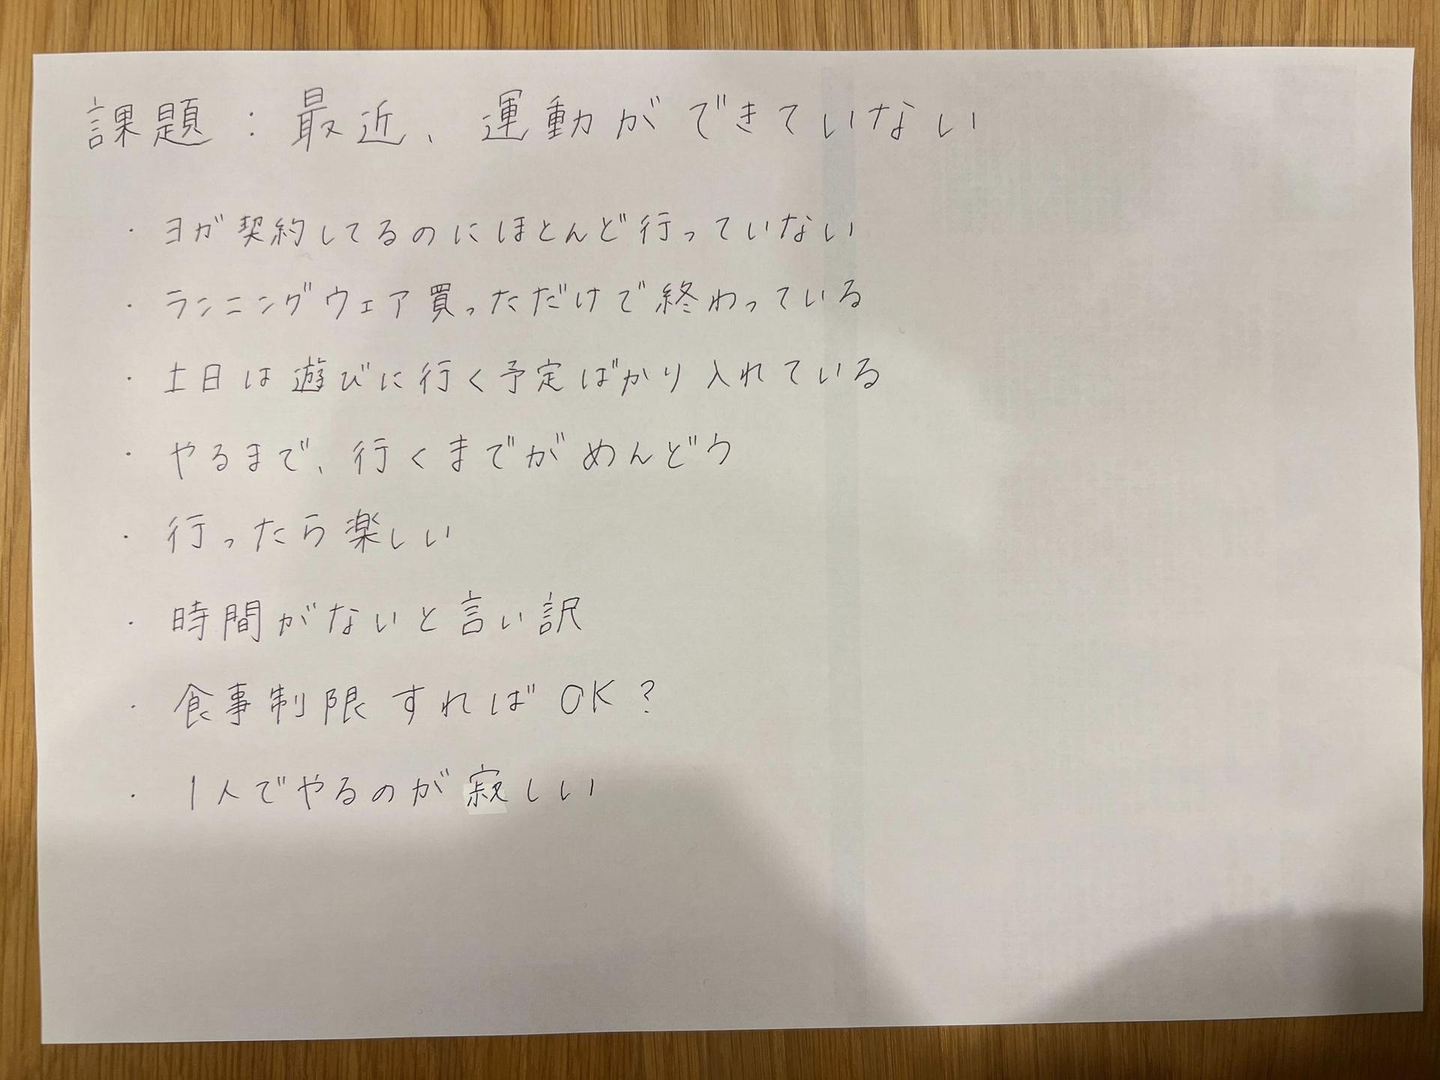 課題：最近、運動ができていない
・ヨガ契約してるのにほとんど行っていない
・ランニングウェア買っただけで終わっている
・土日は遊びに行く予定ばかり入れている
・やるまで、行くまでがめんどウ
・行ったら楽しい
・時間がないと言い訳
・食事制限すればOK？
・1人でやるのが寂しい